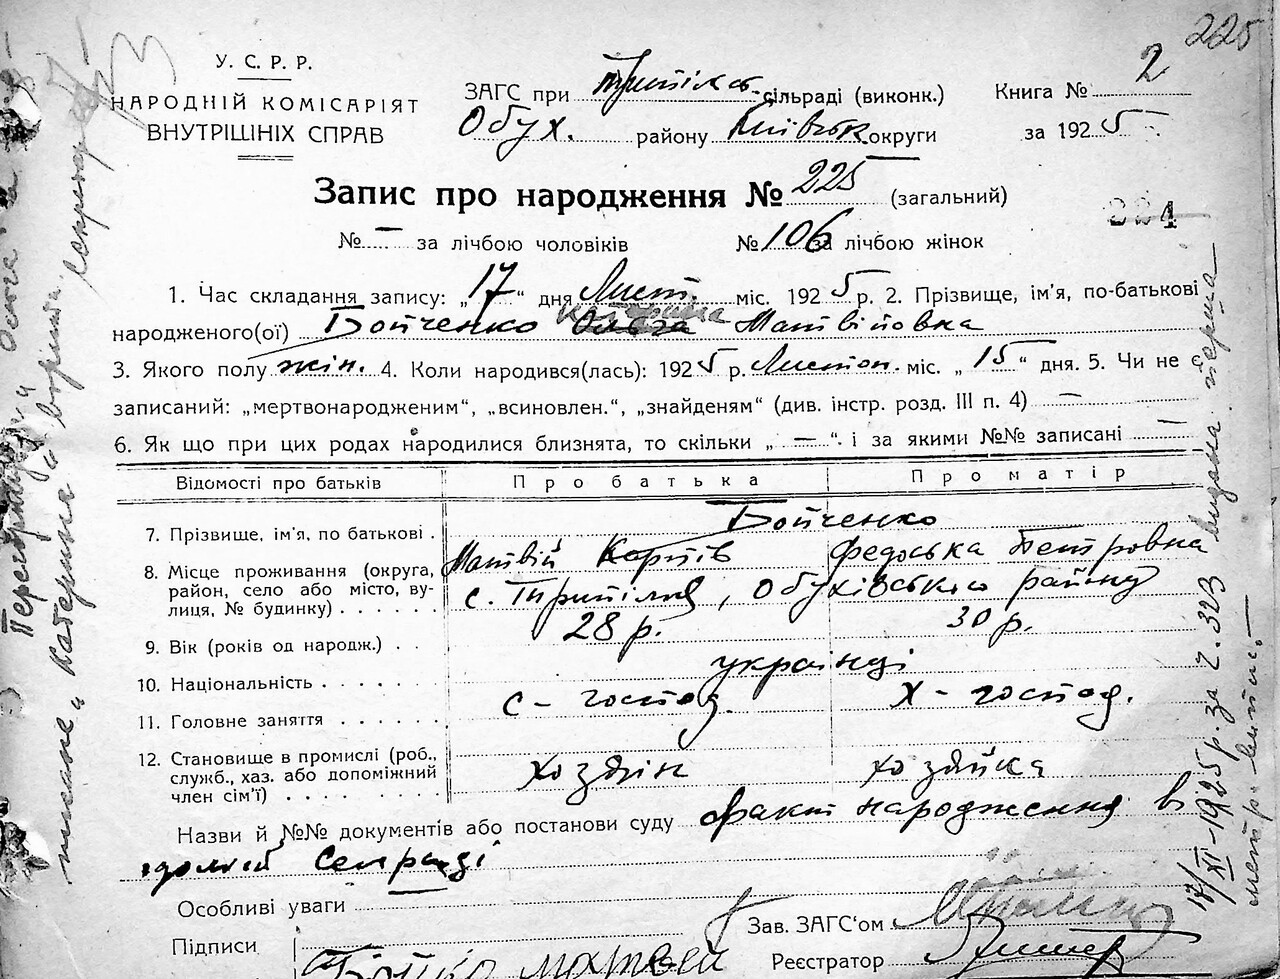 225
У. С. Р. Р.
НАРОДНІЙ КОМІСАРІЯТ
ВНУТРІШНІХ СПРАВ
ЗАГС при сільраді (виконк.)
Обух. району Київськ округи
Книга № 2
за 1925 р.
Запис про народження № 225 (загальний)
№ — за лічбою чоловіків № 106 за лічбою жінок
1. Час складання запису: „17“ дня Лист. міс. 1925 р. 2. Прізвище, ім'я, по-батькові
народженого(ої) Бойченко Ольга Катерина Матвійовка
3. Якого полу жін. 4. Коли народився(лась): 1925 р. Листоп. міс. „15“ дня. 5. Чи не є
записаний: „мертвонародженим“, „всиновлен.“, „знайденям“ (див. інстр. розд. III п. 4) —
6. Як що при цих родах народилися близнята, то скільки „ — “ і за якими №№ записані —
Відомості про батьків Про батька Про матір
7. Прізвище, ім'я, по батькові . Бойченко
Матвій Федоська Петровна
8. Місце проживання (округа,
район, село або місто, ву-
лиця, № будинку) . . . . . с. Трипілля, Обухівського району
9. Вік (років од народж.) . . 28 р. 30 р.
10. Національність . . . . . . українці
11. Головне заняття . . . . . . с – господ. х – господ.
12. Становище в промислі (роб.,
служб., хаз. або допоміжний
член сім'ї) . . . . . . . . хозяїн хозяйка
Назви й №№ документів або постанови суду факт народження ві
домий Сельраді
Особливі уваги
Підписи
Бойко Матвей
Зав. ЗАГС'ом
Реєстратор
17/XI–1925 р. за ч. 323 видана перша
метр. витись